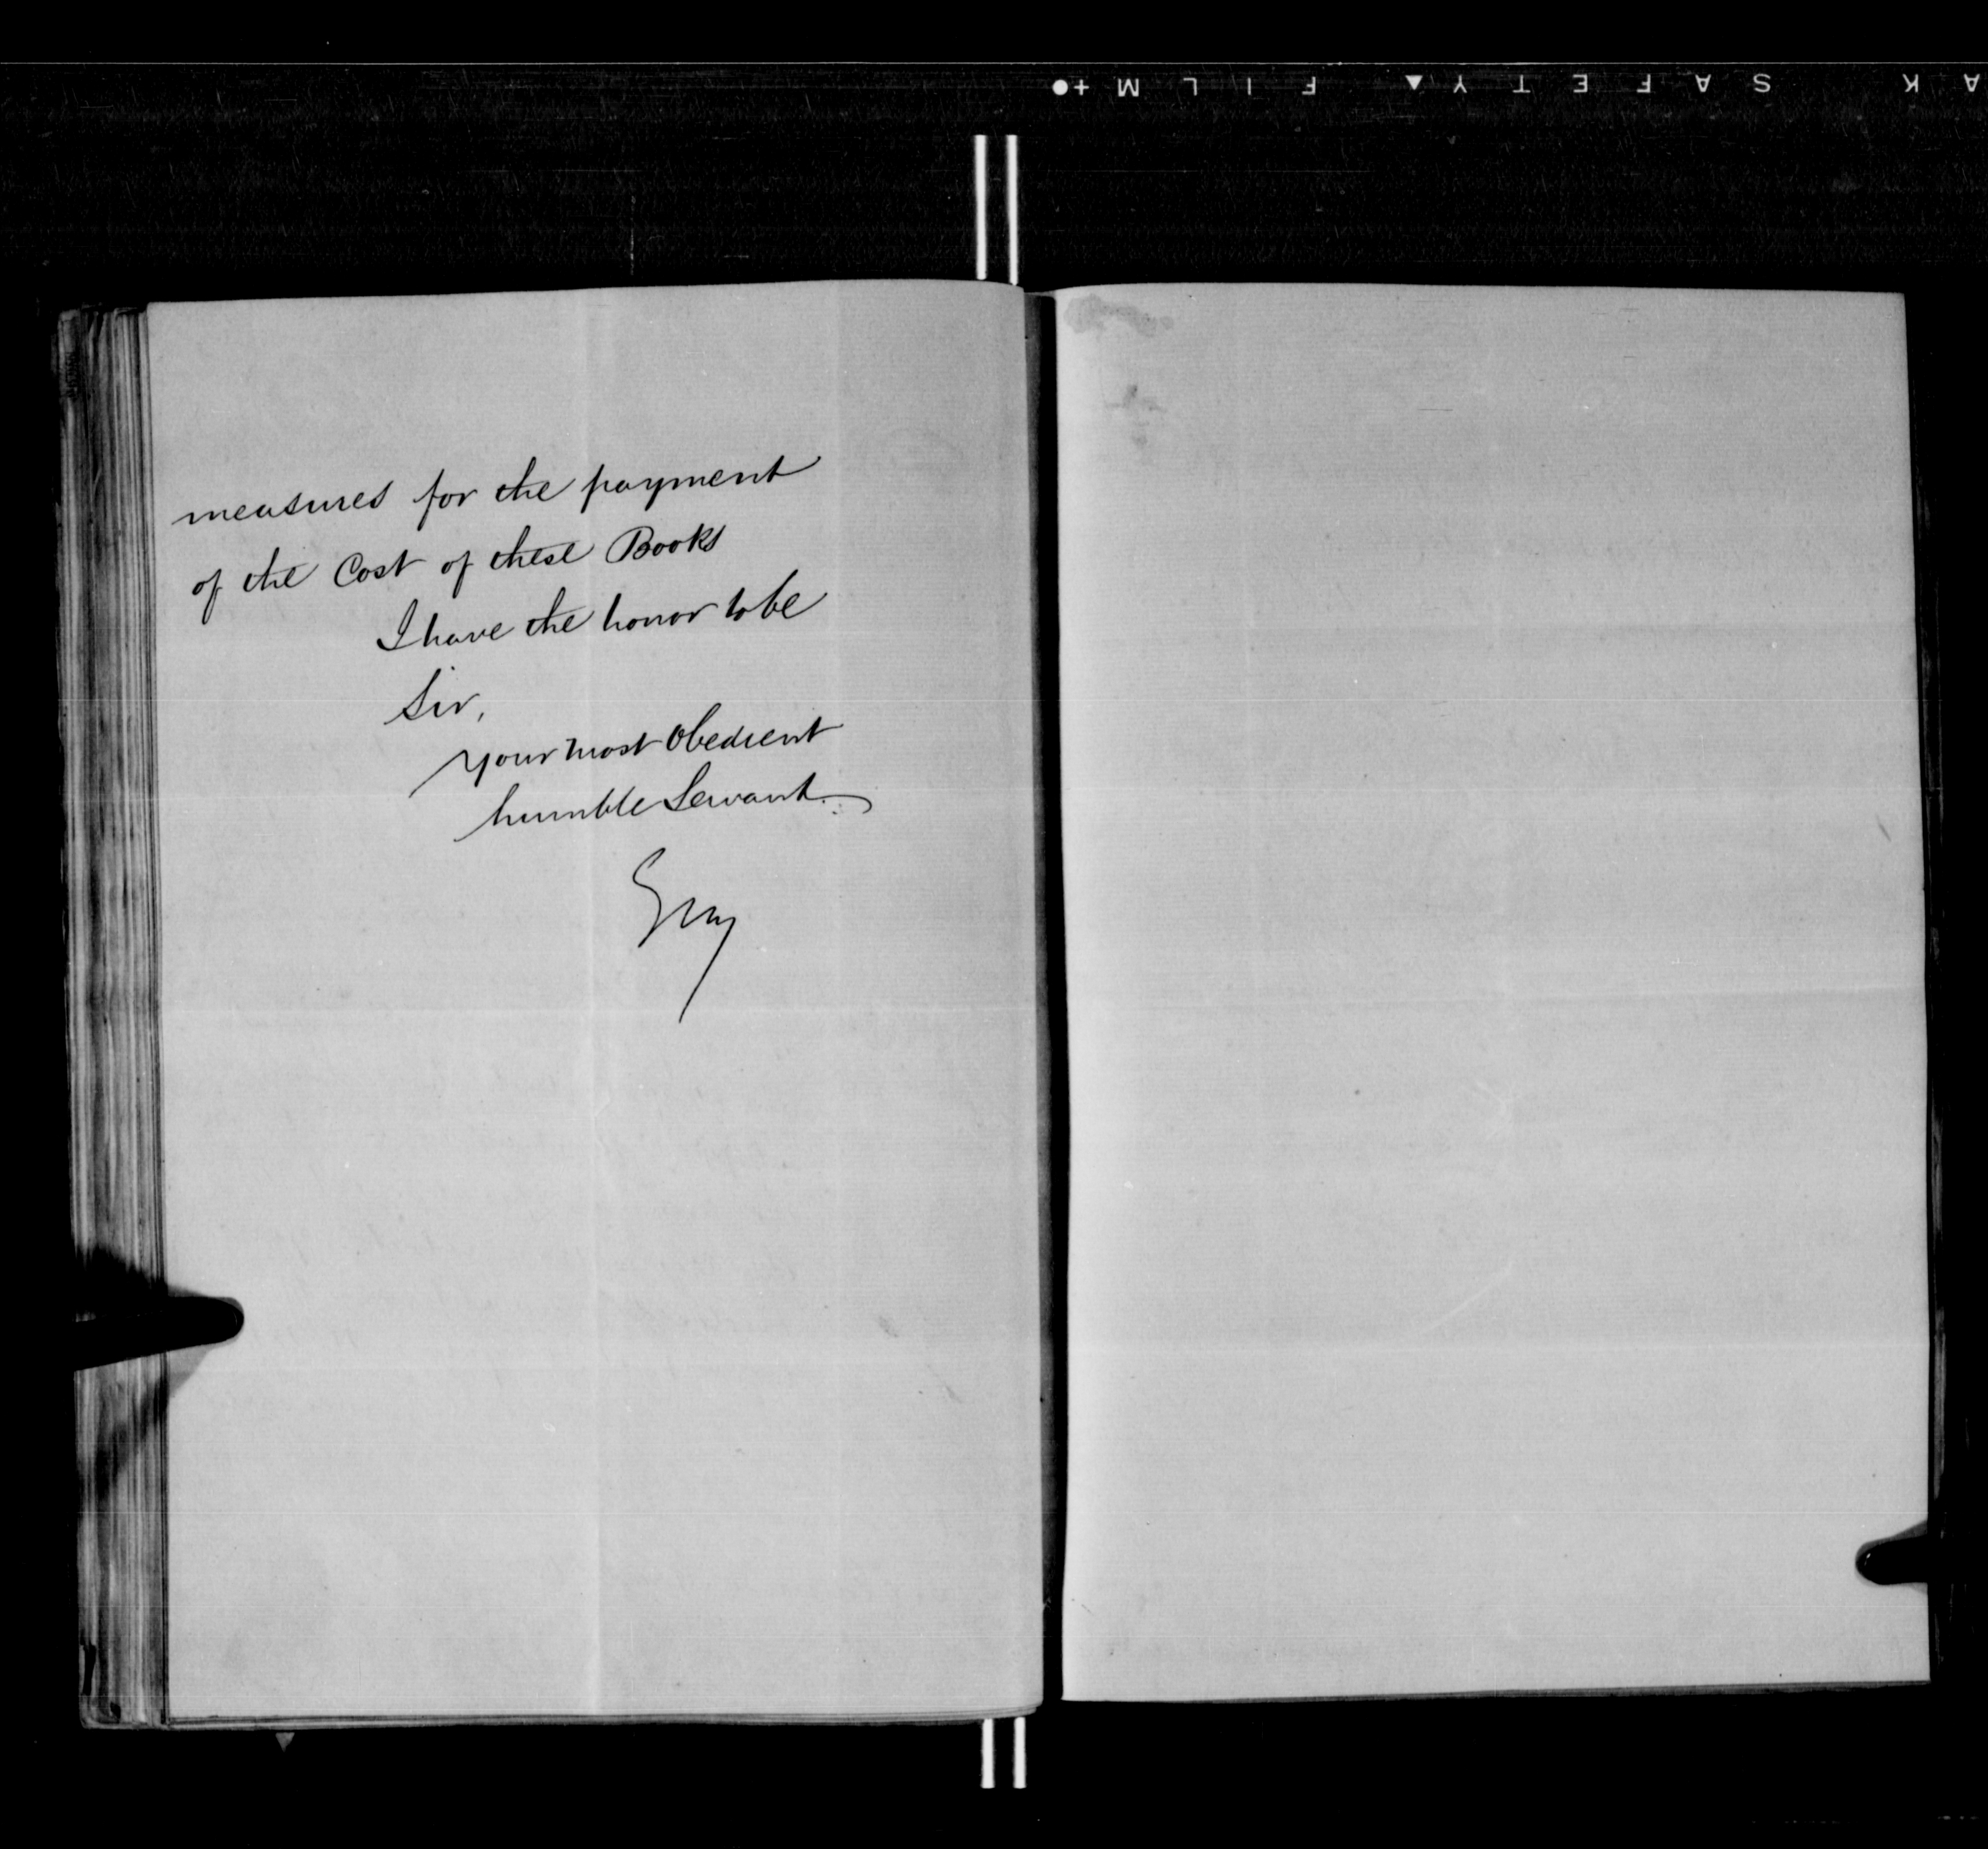 AK SAFETY FILM
measures for the payment
of the Cost of these Books
I have the honor to be
Sir,
Your most Obedient
humble Servant.
Grey